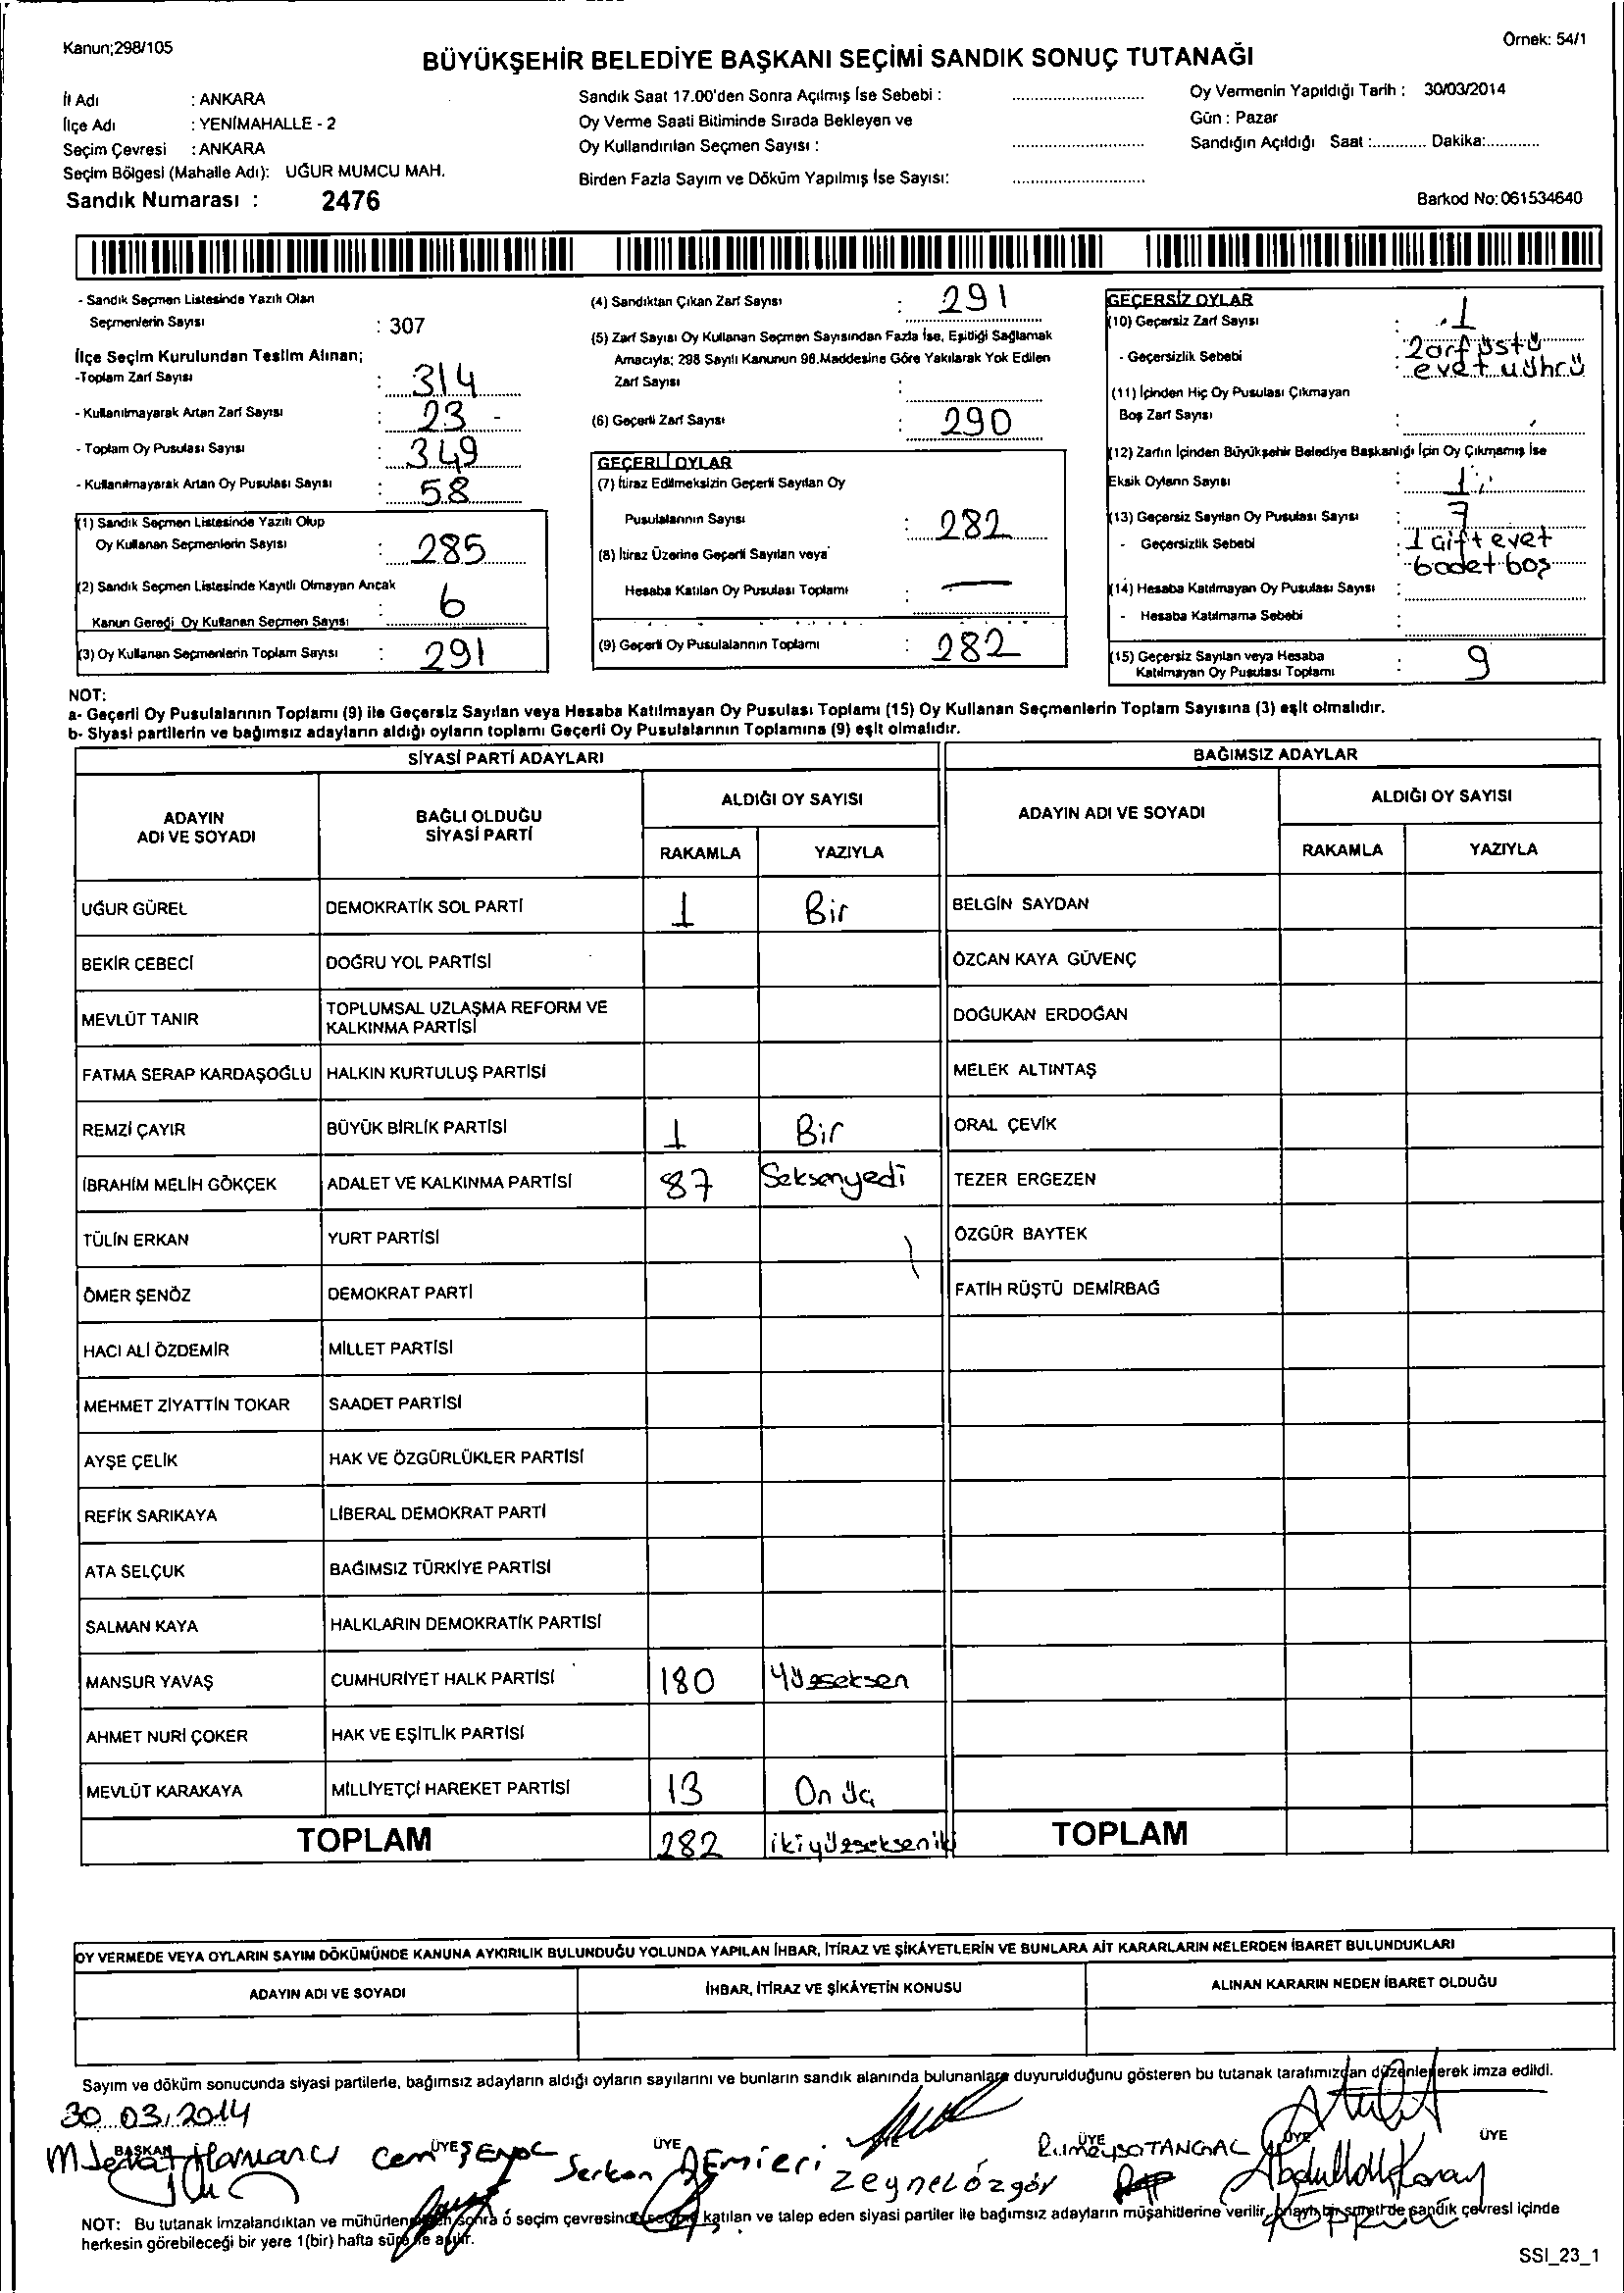 Kanun;298/105
Örnek: 54/1
BÜYÜKŞEHİR BELEDİYE BAŞKANI SEÇİMİ SANDIK SONUÇ TUTANAĞI
İl Adı : ANKARA
İlçe Adı : YENİMAHALLE - 2
Seçim Çevresi : ANKARA
Seçim Bölgesi (Mahalle Adı): UĞUR MUMCU MAH.
Sandık Numarası : 2476
Sandık Saat 17.00'den Sonra Açılmış İse Sebebi :
Oy Verme Saati Bitiminde Sırada Bekleyen ve
Oy Kullandırılan Seçmen Sayısı :
Birden Fazla Sayım ve Döküm Yapılmış İse Sayısı:
Oy Vermenin Yapıldığı Tarih : 30/03/2014
Gün : Pazar
Sandığın Açıldığı Saat :............ Dakika:............
Barkod No: 061534640
- Sandık Seçmen Listesinde Yazılı Olan
Seçmenlerin Sayısı : 307
İlçe Seçim Kurulundan Teslim Alınan;
-Toplam Zarf Sayısı : 314
- Kullanılmayarak Artan Zarf Sayısı : 23 -
- Toplam Oy Pusulası Sayısı : 349
- Kullanılmayarak Artan Oy Pusulası Sayısı : 58
(1) Sandık Seçmen Listesinde Yazılı Olup
Oy Kullanan Seçmenlerin Sayısı : 285
(2) Sandık Seçmen Listesinde Kayıtlı Olmayan Ancak
Kanun Gereği Oy Kullanan Seçmen Sayısı : 6
(3) Oy Kullanan Seçmenlerin Toplam Sayısı : 291
(4) Sandıktan Çıkan Zarf Sayısı : 291
(5) Zarf Sayısı Oy Kullanan Seçmen Sayısından Fazla İse, Eşitliği Sağlamak
Amacıyla; 298 Sayılı Kanunun 98.Maddesine Göre Yakılarak Yok Edilen
Zarf Sayısı :
(6) Geçerli Zarf Sayısı : 290
GEÇERLİ OYLAR
(7) İtiraz Edilmeksizin Geçerli Sayılan Oy
Pusulalarının Sayısı : 282
(8) İtiraz Üzerine Geçerli Sayılan veya
Hesaba Katılan Oy Pusulası Toplamı : —
(9) Geçerli Oy Pusulalarının Toplamı : 282
GEÇERSİZ OYLAR
(10) Geçersiz Zarf Sayısı : 1
- Geçersizlik Sebebi : Zarf üstü
evet mührü
(11) İçinden Hiç Oy Pusulası Çıkmayan
Boş Zarf Sayısı :
(12) Zarfın İçinden Büyükşehir Belediye Başkanlığı İçin Oy Çıkmamış İse
Eksik Oyların Sayısı : 1
(13) Geçersiz Sayılan Oy Pusulası Sayısı : 7
- Geçersizlik Sebebi : 1 Çift evet
6 adet boş
(14) Hesaba Katılmayan Oy Pusulası Sayısı :
- Hesaba Katılmama Sebebi :
(15) Geçersiz Sayılan veya Hesaba
Katılmayan Oy Pusulası Toplamı : 9
NOT:
a- Geçerli Oy Pusulalarının Toplamı (9) ile Geçersiz Sayılan veya Hesaba Katılmayan Oy Pusulası Toplamı (15) Oy Kullanan Seçmenlerin Toplam Sayısına (3) eşit olmalıdır.
b- Siyasi partilerin ve bağımsız adayların aldığı oyların toplamı Geçerli Oy Pusulalarının Toplamına (9) eşit olmalıdır.
SİYASİ PARTİ ADAYLARI BAĞIMSIZ ADAYLAR
ADAYIN ADI VE SOYADI BAĞLI OLDUĞU SİYASİ PARTİ ALDIĞI OY SAYISI ADAYIN ADI VE SOYADI ALDIĞI OY SAYISI
RAKAMLA YAZIYLA RAKAMLA YAZIYLA
UĞUR GÜREL DEMOKRATİK SOL PARTİ 1 Bir BELGİN SAYDAN
BEKİR CEBECİ DOĞRU YOL PARTİSİ ÖZCAN KAYA GÜVENÇ
MEVLÜT TANIR TOPLUMSAL UZLAŞMA REFORM VE KALKINMA PARTİSİ DOĞUKAN ERDOĞAN
FATMA SERAP KARDAŞOĞLU HALKIN KURTULUŞ PARTİSİ MELEK ALTINTAŞ
REMZİ ÇAYIR BÜYÜK BİRLİK PARTİSİ 1 Bir ORAL ÇEVİK
İBRAHİM MELİH GÖKÇEK ADALET VE KALKINMA PARTİSİ 87 Seksenyedi TEZER ERGEZEN
TÜLİN ERKAN YURT PARTİSİ ÖZGÜR BAYTEK
ÖMER ŞENÖZ DEMOKRAT PARTİ FATİH RÜŞTÜ DEMİRBAĞ
HACI ALİ ÖZDEMİR MİLLET PARTİSİ
MEHMET ZİYATTİN TOKAR SAADET PARTİSİ
AYŞE ÇELİK HAK VE ÖZGÜRLÜKLER PARTİSİ
REFİK SARIKAYA LİBERAL DEMOKRAT PARTİ
ATA SELÇUK BAĞIMSIZ TÜRKİYE PARTİSİ
SALMAN KAYA HALKLARIN DEMOKRATİK PARTİSİ
MANSUR YAVAŞ CUMHURİYET HALK PARTİSİ 180 Yüzseksen
AHMET NURİ ÇOKER HAK VE EŞİTLİK PARTİSİ
MEVLÜT KARAKAYA MİLLİYETÇİ HAREKET PARTİSİ 13 On üç
TOPLAM 282 ikiyüzsekseniki TOPLAM
OY VERMEDE VEYA OYLARIN SAYIM DÖKÜMÜNDE KANUNA AYKIRILIK BULUNDUĞU YOLUNDA YAPILAN İHBAR, İTİRAZ VE ŞİKÂYETLERİN VE BUNLARA AİT KARARLARIN NELERDEN İBARET BULUNDUKLARI
ADAYIN ADI VE SOYADI İHBAR, İTİRAZ VE ŞİKÂYETİN KONUSU ALINAN KARARIN NEDEN İBARET OLDUĞU
Sayım ve döküm sonucunda siyasi partilerle, bağımsız adayların aldığı oyların sayılarını ve bunların sandık alanında bulunanlara duyurulduğunu gösteren bu tutanak tarafımızdan düzenlenerek imza edildi.
30.03.2014
BAŞKAN ÜYE ÜYE ÜYE ÜYE ÜYE ÜYE
Cem ŞENOL Serkan Zeynel Özgör Abdullah Koray
NOT: Bu tutanak imzalandıktan ve mühürlendikten sonra o seçim çevresinde seçime katılan ve talep eden siyasi partiler ile bağımsız adayların müşahitlerine verilir, onaylı bir sureti de sandık çevresi içinde
herkesin görebileceği bir yere 1(bir) hafta süre ile asılır.
SSI_23_1